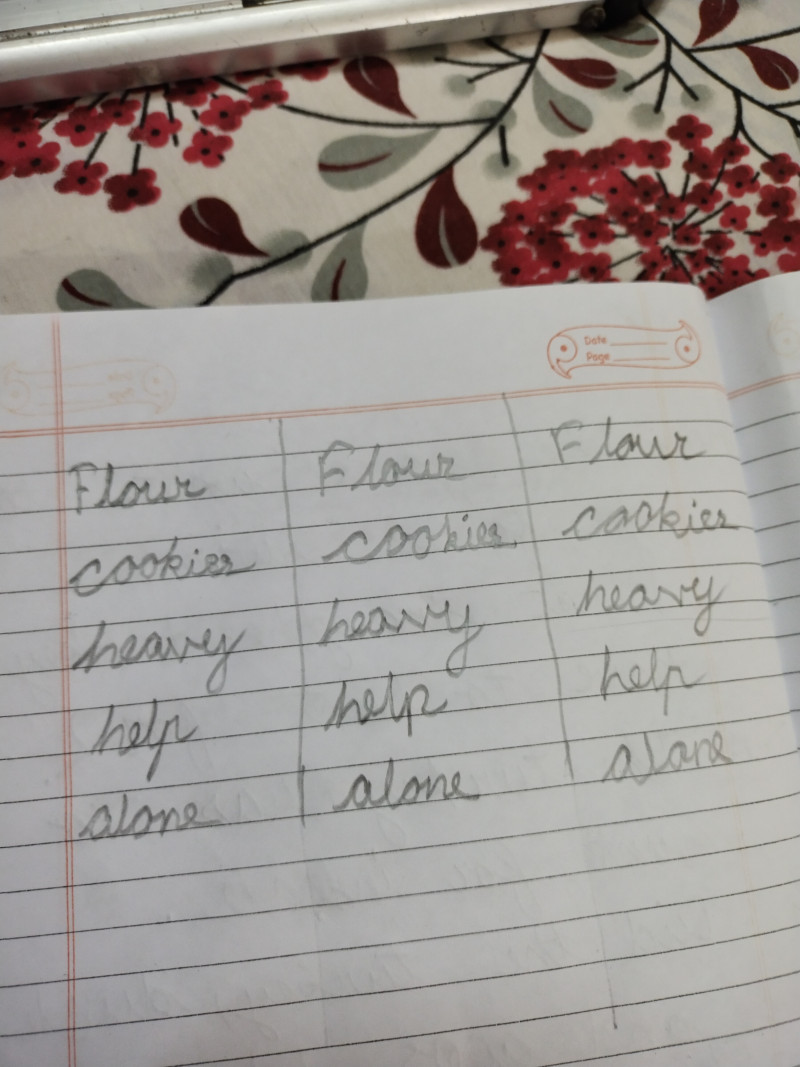 Date
Page
Flour Flour Flour
cookies cookies cookies
heavy heavy heavy
help help help
alone alone alone